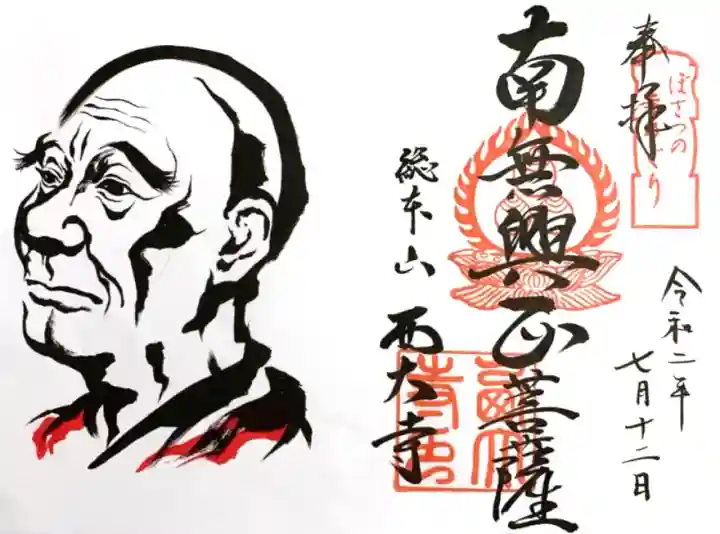 奉拝
ぼさつの
令和二年
七月十二日
南無興正菩薩
総本山 西大寺